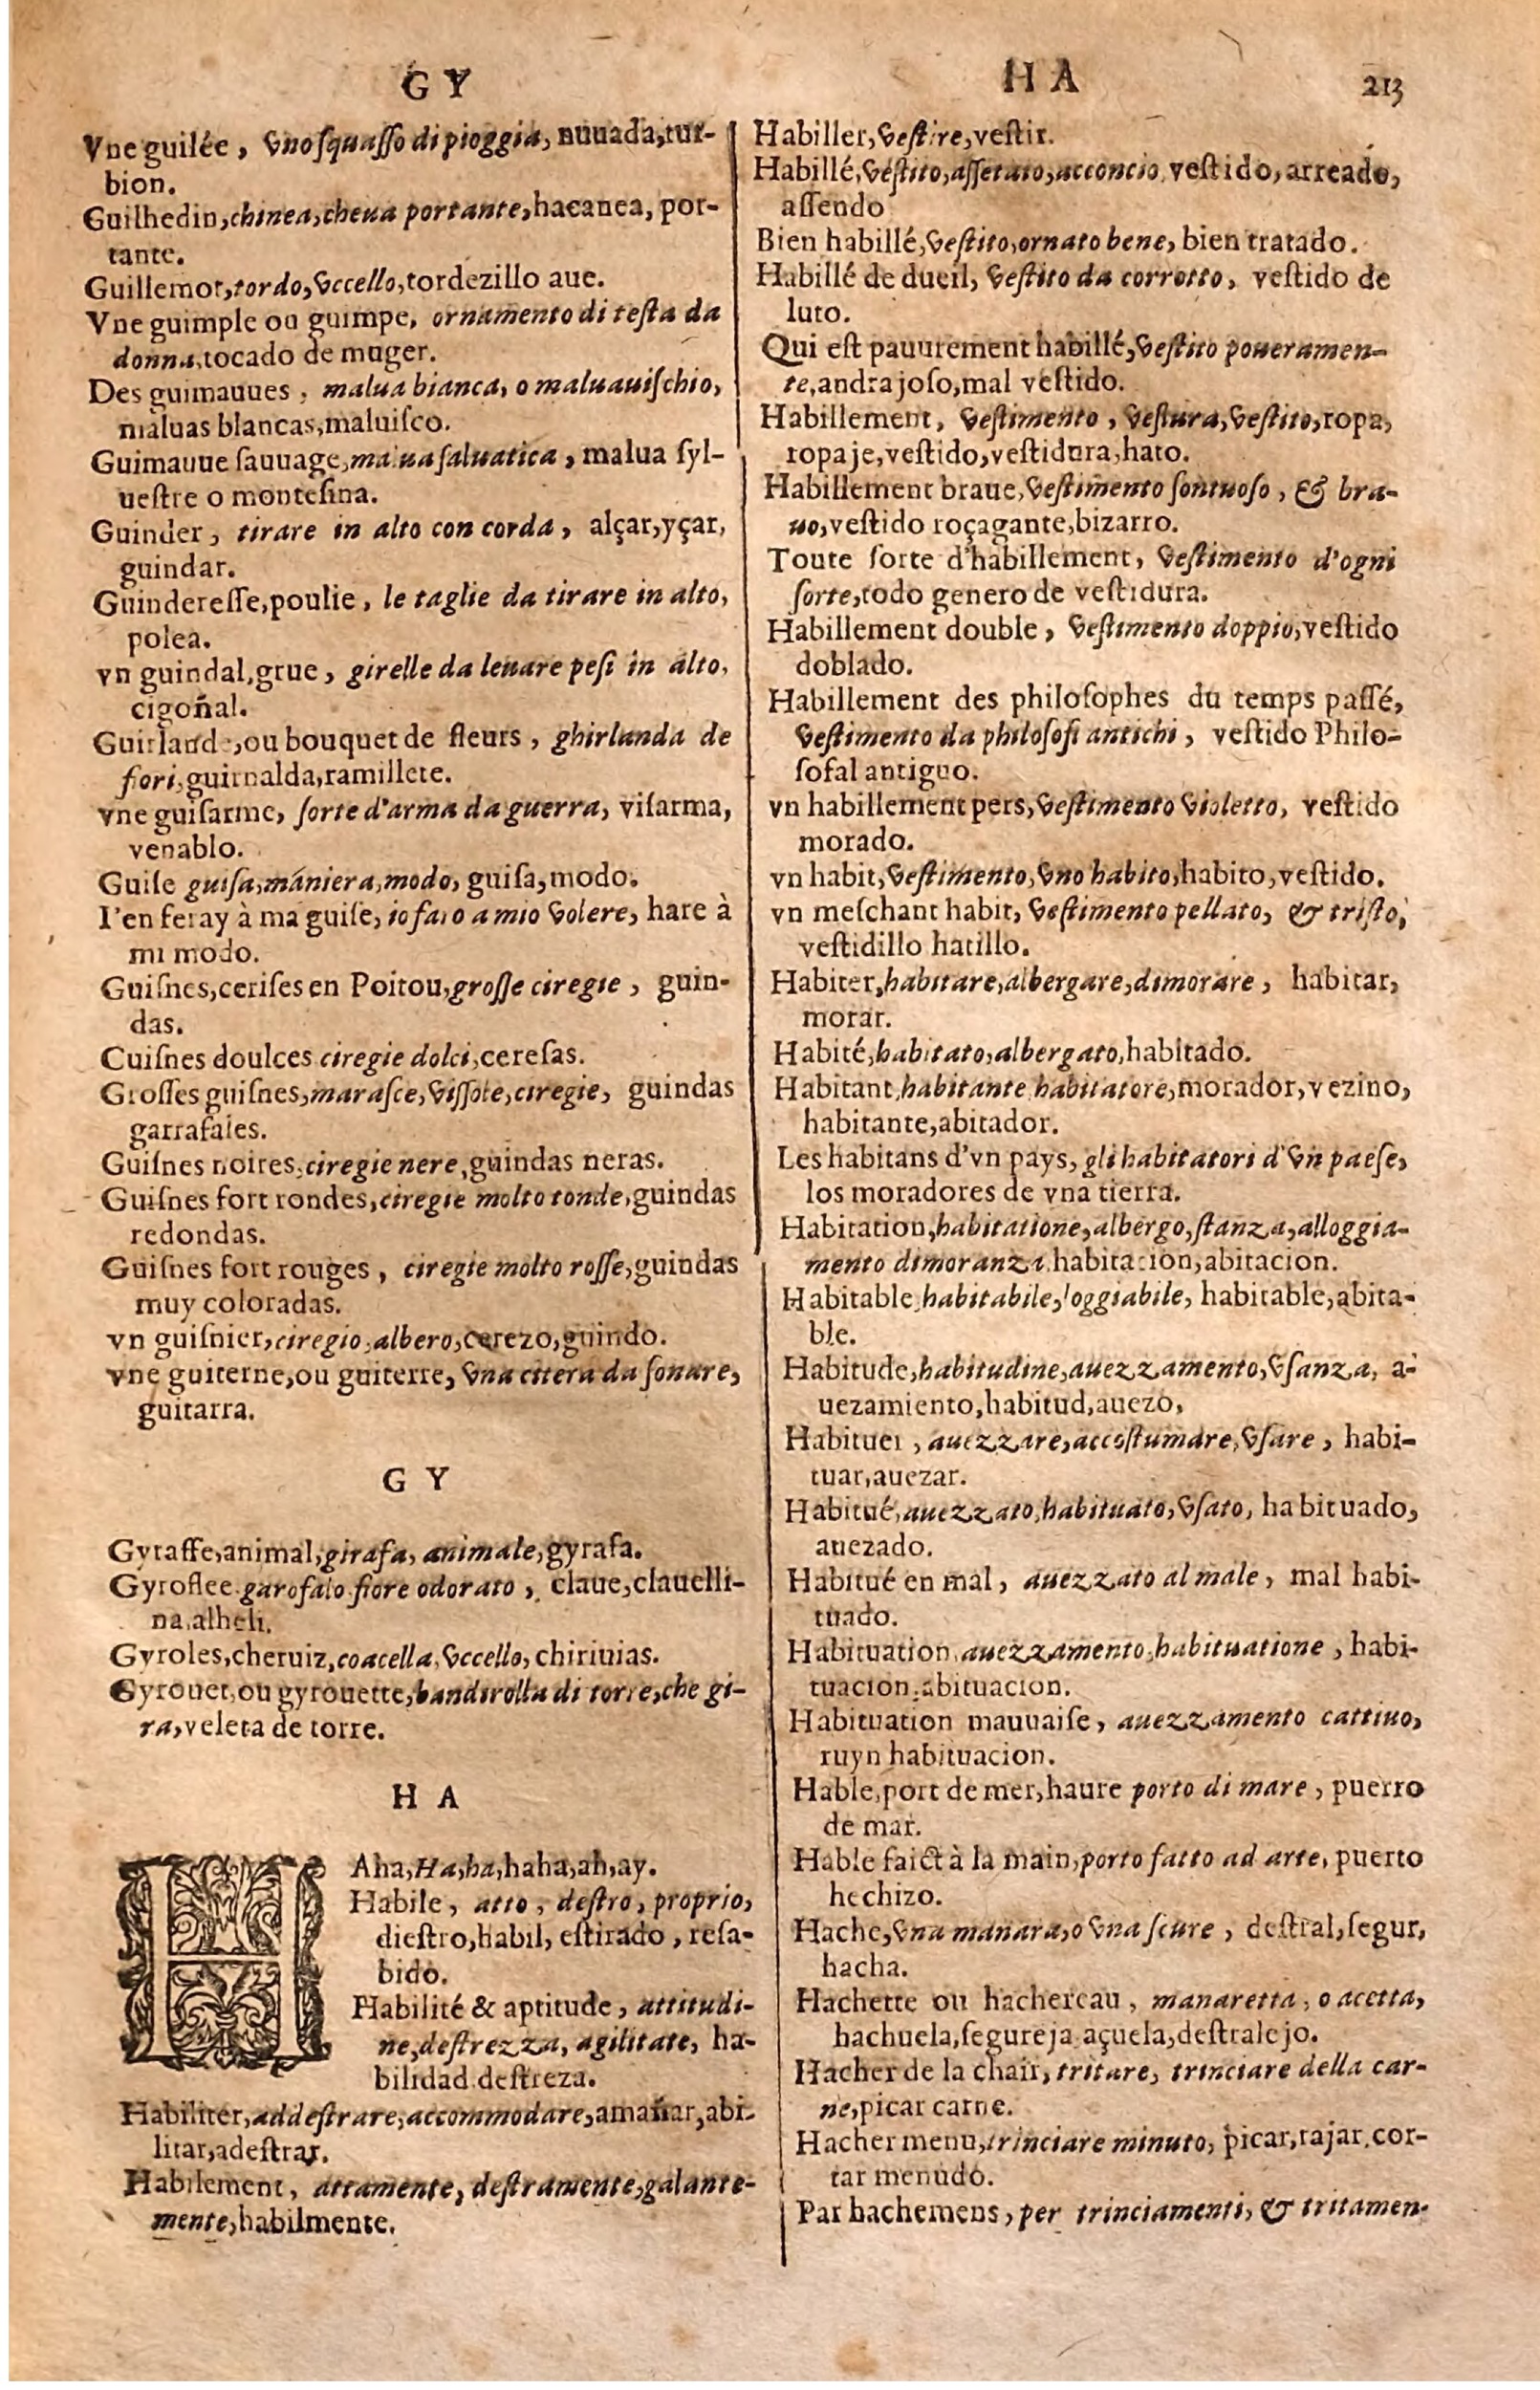 GY
Vne guilée, vno squasso di pioggia, nuuada, tur-
bion.
Guilhedin, chinea, cheua portante, hacanea, por-
tante.
Guillemot, tordo, vccello, tordezillo aue.
Vne guimple ou guimpe, ornamento di testa da
donna, tocado de muger.
Des guimauues, malua bianca, o maluauischio,
maluas blancas, maluisco.
Guimauue sauuage, malua saluatica, malua syl-
uestre o montesina.
Guinder, tirare in alto con corda, alçar, yçar,
guindar.
Guinderesse, poulie, le taglie da tirare in alto,
polea.
vn guindal, grue, girelle da leuare pesi in alto,
cigoñal.
Guirlande, ou bouquet de fleurs, ghirlanda de
fiori, guirnalda, ramillete.
vne guisarme, sorte d'arma da guerra, visarma,
venablo.
Guise guisa, maniera, modo, guisa, modo.
I'en feray à ma guise, io faro a mio volere, hare à
mi modo.
Guisnes, cerises en Poitou, grosse ciregie, guin-
das.
Cuisnes doulces ciregie dolci, ceresas.
Grosses guisnes, marasce, vissole, ciregie, guindas
garrafales.
Guisnes noires, ciregie nere, guindas neras.
Guisnes fort rondes, ciregie molto tonde, guindas
redondas.
Guisnes fort rouges, ciregie molto rosse, guindas
muy coloradas.
vn guisnier, ciregio, albero, cerezo, guindo.
vne guiterne, ou guiterre, vna citera da sonare,
guitarra.
GY
Gyraffe, animal, girafa, animale, gyrafa.
Gyroflee garofalo fiore odorato, claue, clauelli-
na, alheli.
Gyroles, cheruiz, coacella, vccello, chiriuias.
Gyrouet, ou gyrouette, bandirolla di torre, che gi-
ra, veleta de torre.
HA
HAha, Ha, ha, haha, ah, ay.
Habile, atto, destro, proprio,
diestro, habil, estirado, resa-
bido.
Habilité & aptitude, attitudi-
ne, destrezza, agilitate, ha-
bilidad destreza.
Habiliter, addestrare, accommodare, amañar, abi-
litar, adestrar.
Habilement, attamente, destramente, galante-
mente, habilmente.
HA 213
Habiller, vestire, vestir.
Habillé, vestito, assetato, acconcio, vestido, arreado,
assendo
Bien habillé, vestito, ornato bene, bien tratado.
Habillé de dueil, vestito da corrotto, vestido de
luto.
Qui est pauurement habillé, vestito poueramen-
te, andrajoso, mal vestido.
Habillement, vestimento, vestura, vestito, ropa,
ropaje, vestido, vestidura, hato.
Habillement braue, vestimento sontuoso, & bra-
uo, vestido roçagante, bizarro.
Toute sorte d'habillement, vestimento d'ogni
sorte, todo genero de vestidura.
Habillement double, vestimento doppio, vestido
doblado.
Habillement des philosophes du temps passé,
vestimento da philosofi antichi, vestido Philo-
sofal antiguo.
vn habillement pers, vestimento violetto, vestido
morado.
vn habit, vestimento, vno habito, habito, vestido.
vn meschant habit, vestimento pellato, & tristo,
vestidillo hatillo.
Habiter, habitare, albergare, dimorare, habitar,
morar.
Habité, habitato, albergato, habitado.
Habitant, habitante, habitatore, morador, vezino,
habitante, abitador.
Les habitans d'vn pays, gli habitatori d'vn paese,
los moradores de vna tierra.
Habitation, habitatione, albergo, stanza, alloggia-
mento dimoranza, habitacion, abitacion.
Habitable, habitabile, loggiabile, habitable, abita-
ble.
Habitude, habitudine, auezzamento, vsanza, a-
uezamiento, habitud, auezo,
Habituer, auezzare, accostumare, vsare, habi-
tuar, auezar.
Habitué, auezzato, habituato, vsato, habituado,
auezado.
Habitué en mal, auezzato al male, mal habi-
tuado.
Habituation, auezzamento, habituatione, habi-
tuacion, abituacion.
Habituation mauuaise, auezzamento cattiuo,
ruyn habituacion.
Hable, port de mer, haure porto di mare, puerro
de mar.
Hable faict à la main, porto fatto ad arte, puerto
hechizo.
Hache, vna manara, o vna scure, destral, segur,
hacha.
Hachette ou hachereau, manaretta, o acetta,
hachuela, segureja açuela, destralejo.
Hacher de la chair, tritare, trinciare della car-
ne, picar carne.
Hacher menu, trinciare minuto, picar, tajar, cor-
tar menudo.
Par hachemens, per trinciamenti, & tritamen-